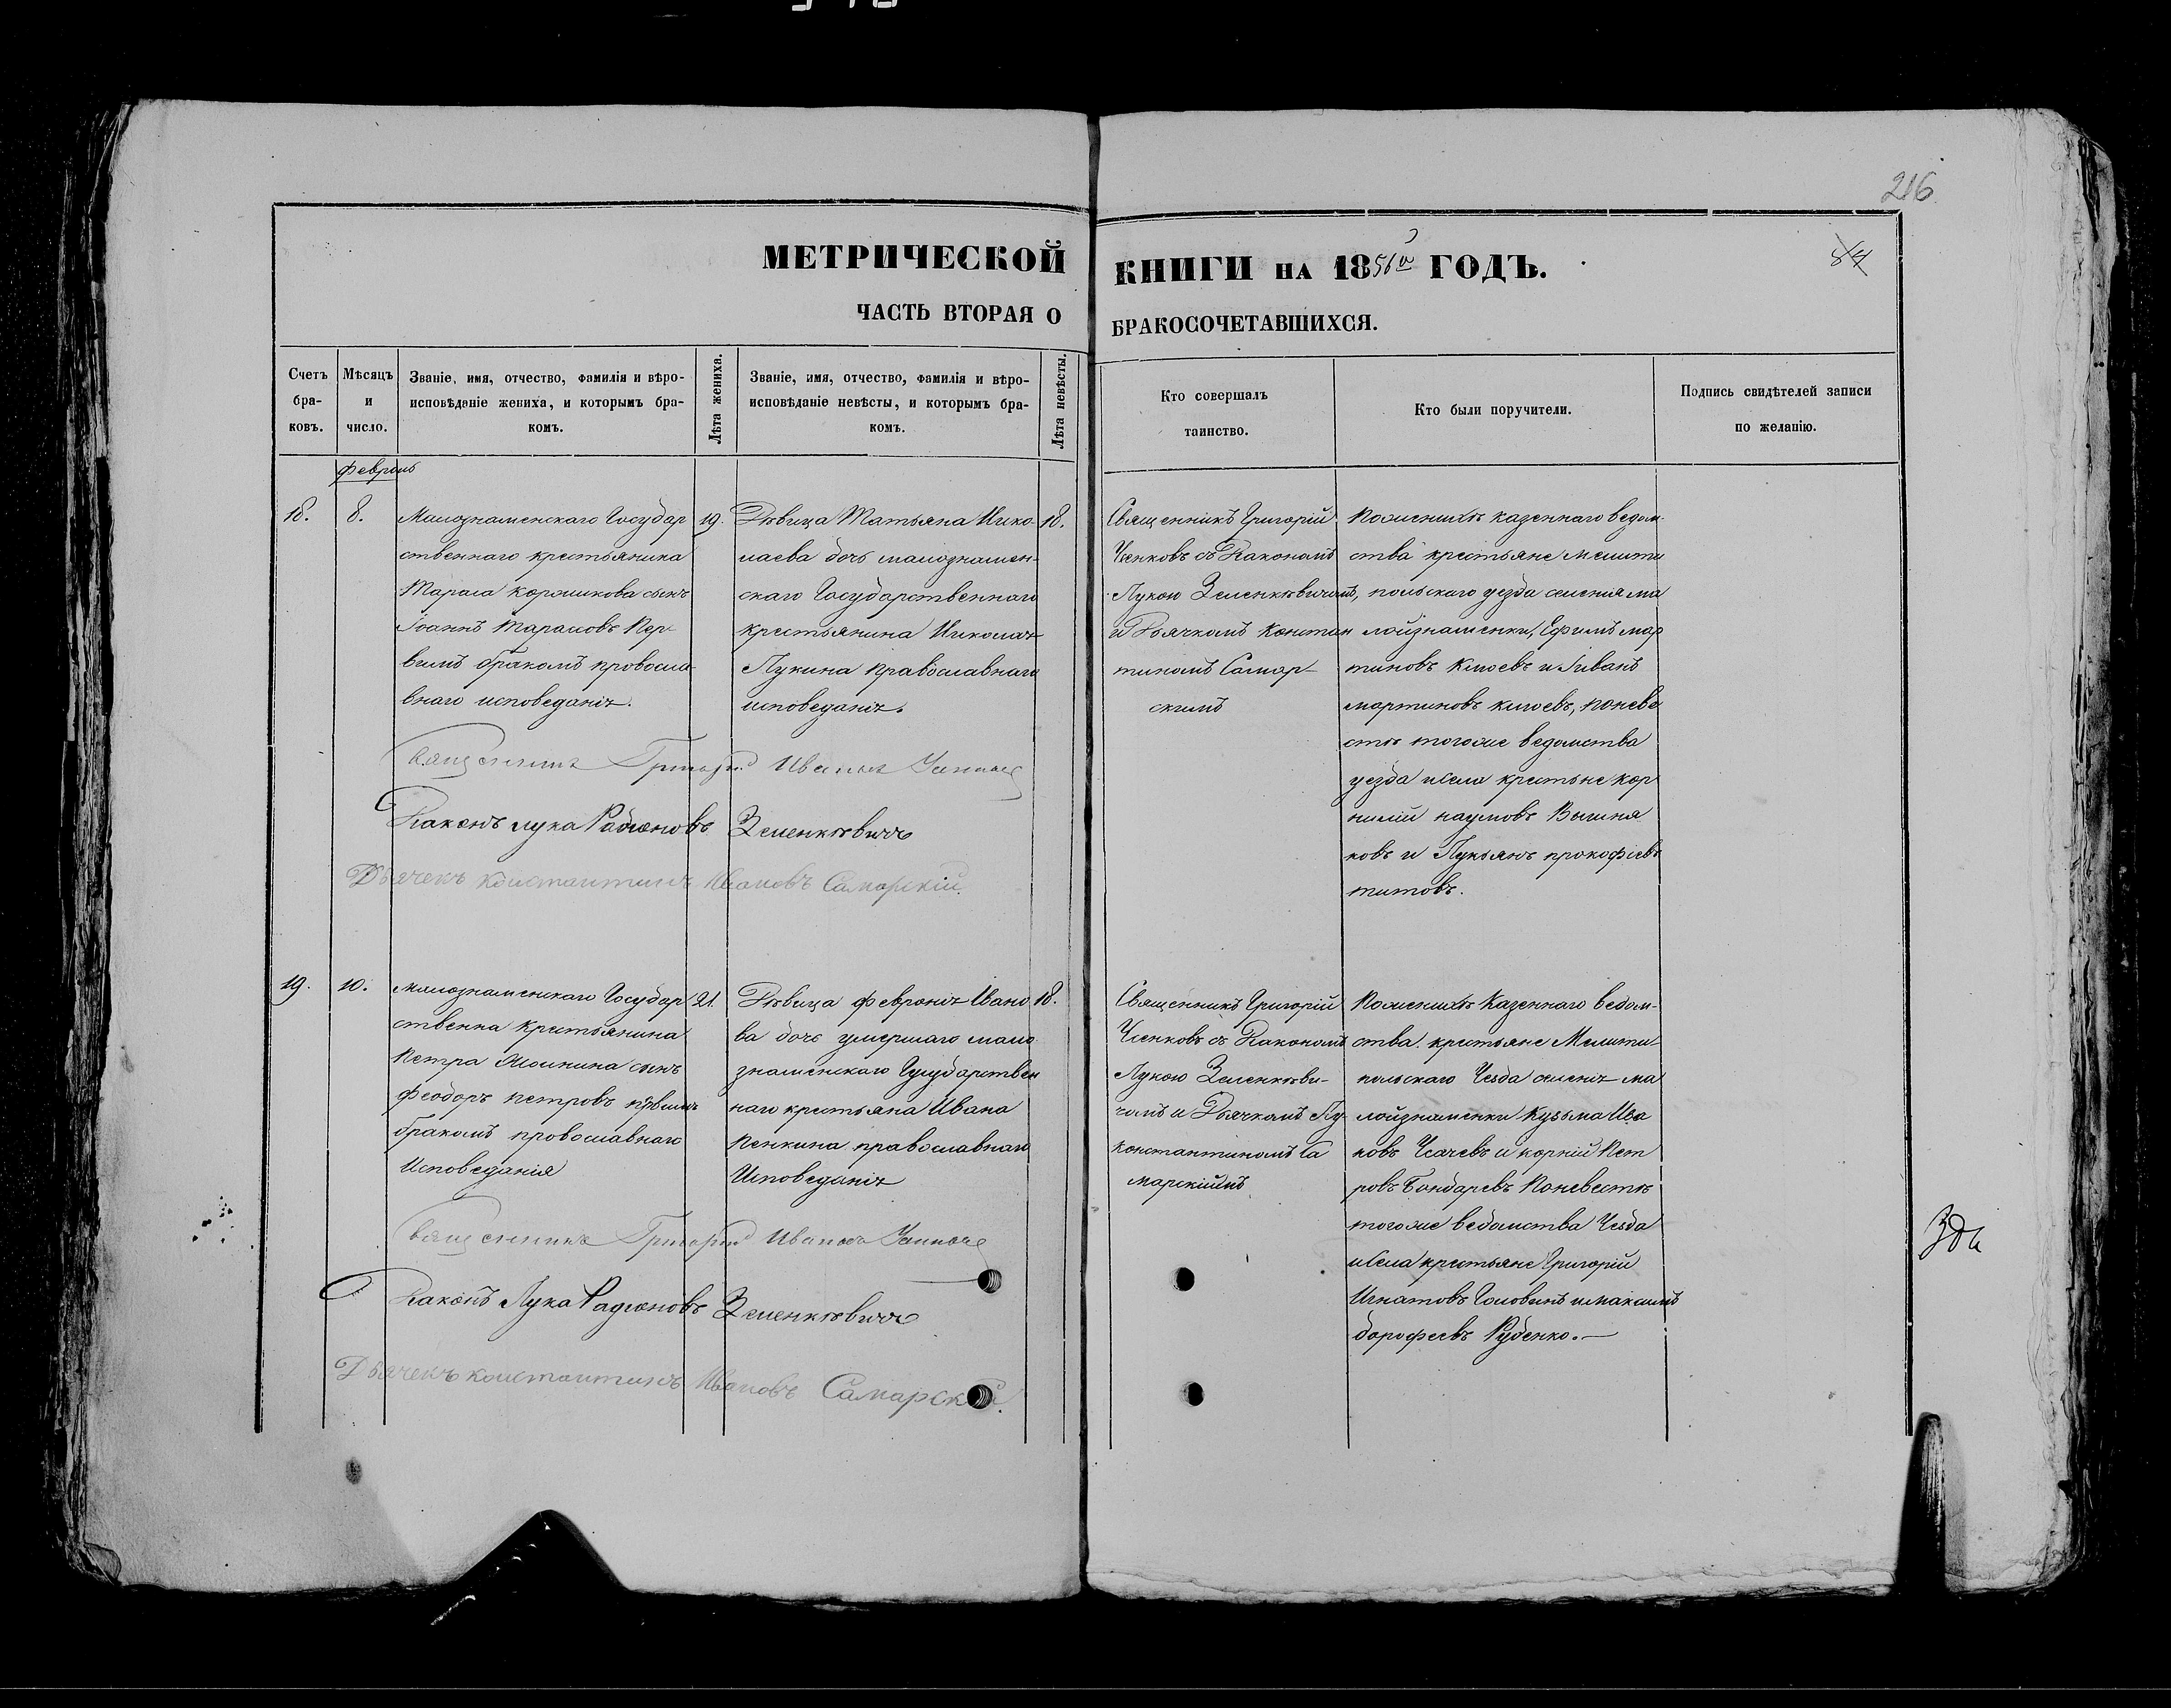 216
МЕТРИЧЕСКОЙ КНИГИ НА 1856й ГОДЪ.
84
ЧАСТЬ ВТОРАЯ О БРАКОСОЧЕТАВШИХСЯ.
Счетъ бра-ковъ.
Мѣсяцъ и число.
Званіе, имя, отчество, фамилія и вѣро-
исповѣданіе жениха, и которымъ бра-
комъ.
Лѣта жениха.
Званіе, имя, отчество, фамилія и вѣро-
исповѣданіе невѣсты, и которымъ бра-
комъ.
Лѣта невѣсты.
Кто совершалъ
таинство.
Кто были поручители.
Подпись свидѣтелей записи
по желанію.
февраль
18.
8.
Малознаменскаго Государ
ственнаго крестьянина
Тараса Коржикова сынъ
Іоаннъ Тарасовъ Пер-
вымъ бракомъ провосла-
внаго исповеданія.
19.
Дѣвица Татьяна Нико-
лаева дочь малознамен-
скаго Государственнаго
крестьянина Николая
Лукина православнаго
исповеданія.
18.
Священникъ Григорій
Ченковъ съ Диакономъ
Лукою Зеленкѣвичомъ,
и Дьячкомъ Констан
тиномъ Самар-
скимъ
По женихѣ казеннаго ведом-
ства крестьяне мелити
польскаго уезда селения ма
лойзнаменки, Ефимъ мар
тиновъ и Иванъ
мартиновъ поневе
стѣ тогоже ведомства
уезда исела крестьяне кор
нилій наумовъ
ковъ и Лукьянъ прокофіевъ
титовъ.
Священникъ Григорій Ивановъ Ченковъ
Диаконъ Лука Радионовъ Зеленкѣвичъ
Дьячекъ Константинъ Ивановъ Самарскій.
19.
10.
малознаменскаго Государ
ственна Крестьянина
Петра сынъ
Феодоръ Петровъ первымъ
бракомъ провославнаго
Исповеданія
21.
Дѣвица Февронія Ивано
ва дочь умершаго мало
знаменскаго Гусударствен
наго крестьяна Ивана
Пенкина православнаго
Исповеданія
18.
Священникъ Григорій
Ченковъ съ Диакономъ
Лукою Зеленкѣви-
чомъ и Дьячкомъ Лу
Константиномъ Са
марскіимъ
По женихѣ Казеннаго ведом-
ства крестьяне Мелити-
польскаго Уезда селенія ма
лойзнаменки Кузьма Ива
новъ Усачевъ и корній Пет
ровъ Бондаревъ Поневестѣ
тогоже ведомства Уезда
исела крестьяне Григорій
Игнатовъ Головинъ имаксимъ
дорофеевъ Руденко.—
Священникъ Григорій Ивановъ Ченковъ
Диаконъ Лука Радионовъ Зеленкѣвичъ
Дьячекъ Константинъ Ивановъ Самарскій.